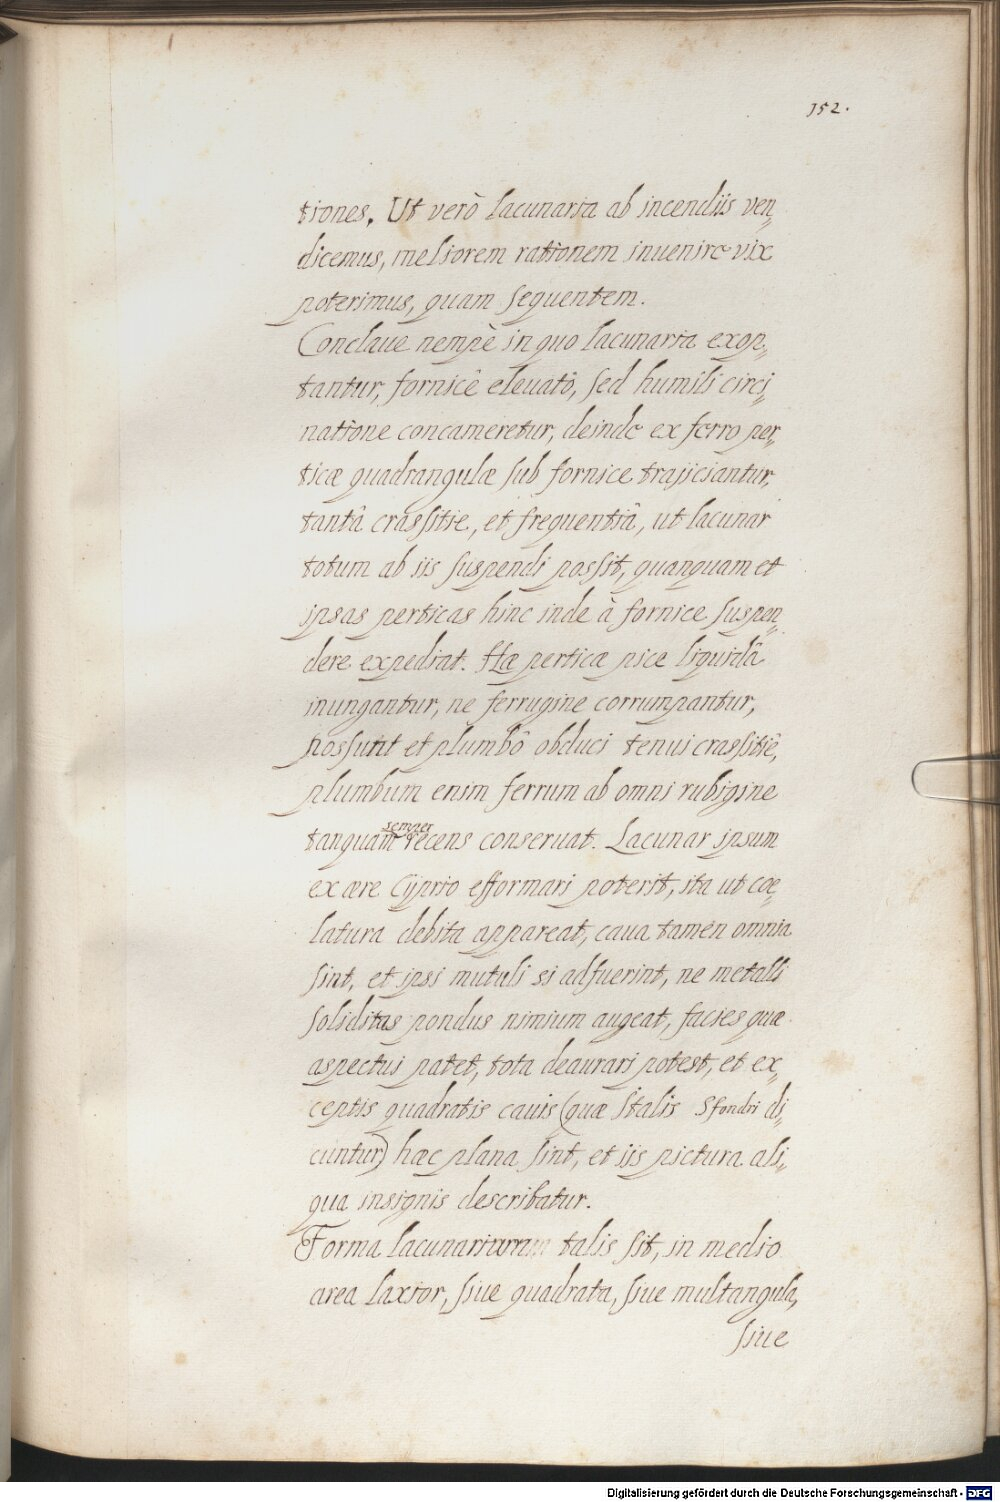 352.
tiones. Ut verò lacunaria ab incendiis ven„
dicemus, meliorem rationem inuenire vix
poterimus, quam sequentem.
Conclaue nempè in quo lacunaria exop„
tantur, fornicê eleuatô, sed humili circi„
natione concameretur, deinde ex ferro per„
ticæ quadrangulæ sub fornice trajiciantur,
tantâ crassitie, et frequentiâ, ut lacunar
totum ab iis suspendi possit, quanquam et
ipsas perticas hinc inde à fornice suspen„
dere expediat. Hæ perticæ pice liquidâ
inungantur, ne ferrugine corrumpantur,
possunt et plumbô obduci tenui crassitiê,
plumbum enim ferrum ab omni rubigine
semper
tanquam recens conseruat. Lacunar ipsum
ex ære Cyprio efformari poterit, ita ut cœ„
latura debita appareat, caua tamen omnia
sint, et ipsi mutuli si adfuerint, ne metalli
soliditas pondus nimium augeat, facies quæ
aspectui patet, tota deaurari potest, et ex„
ceptis quadratis cauis (quæ Italis Sfondri di„
cuntur) hæc plana sint, et iis pictura ali„
qua insignis describatur.
Forma lacunarium talis sit, in medio
area laxior, siue quadrata, siue multangula,
siue
Digitalisierung gefördert durch die Deutsche Forschungsgemeinschaft - DFG